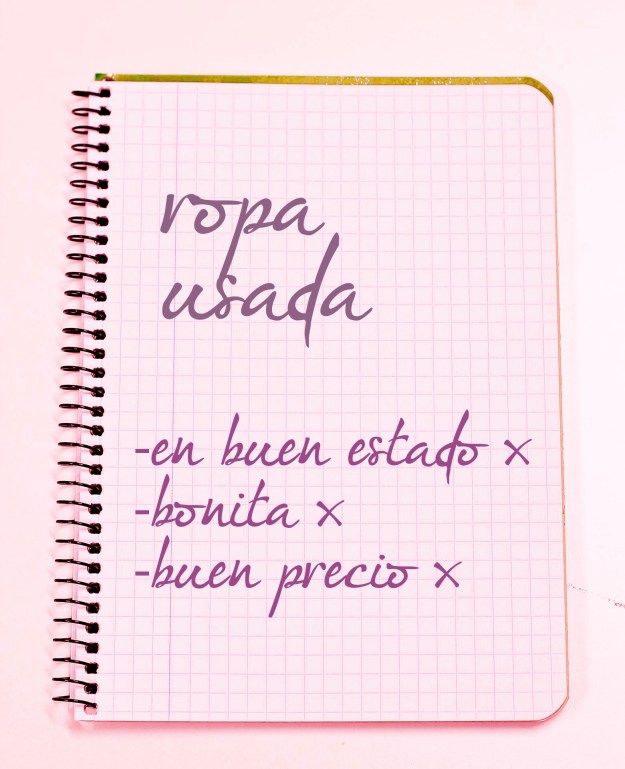 ropa
usada
-en buen estado x
-bonita x
-buen precio x